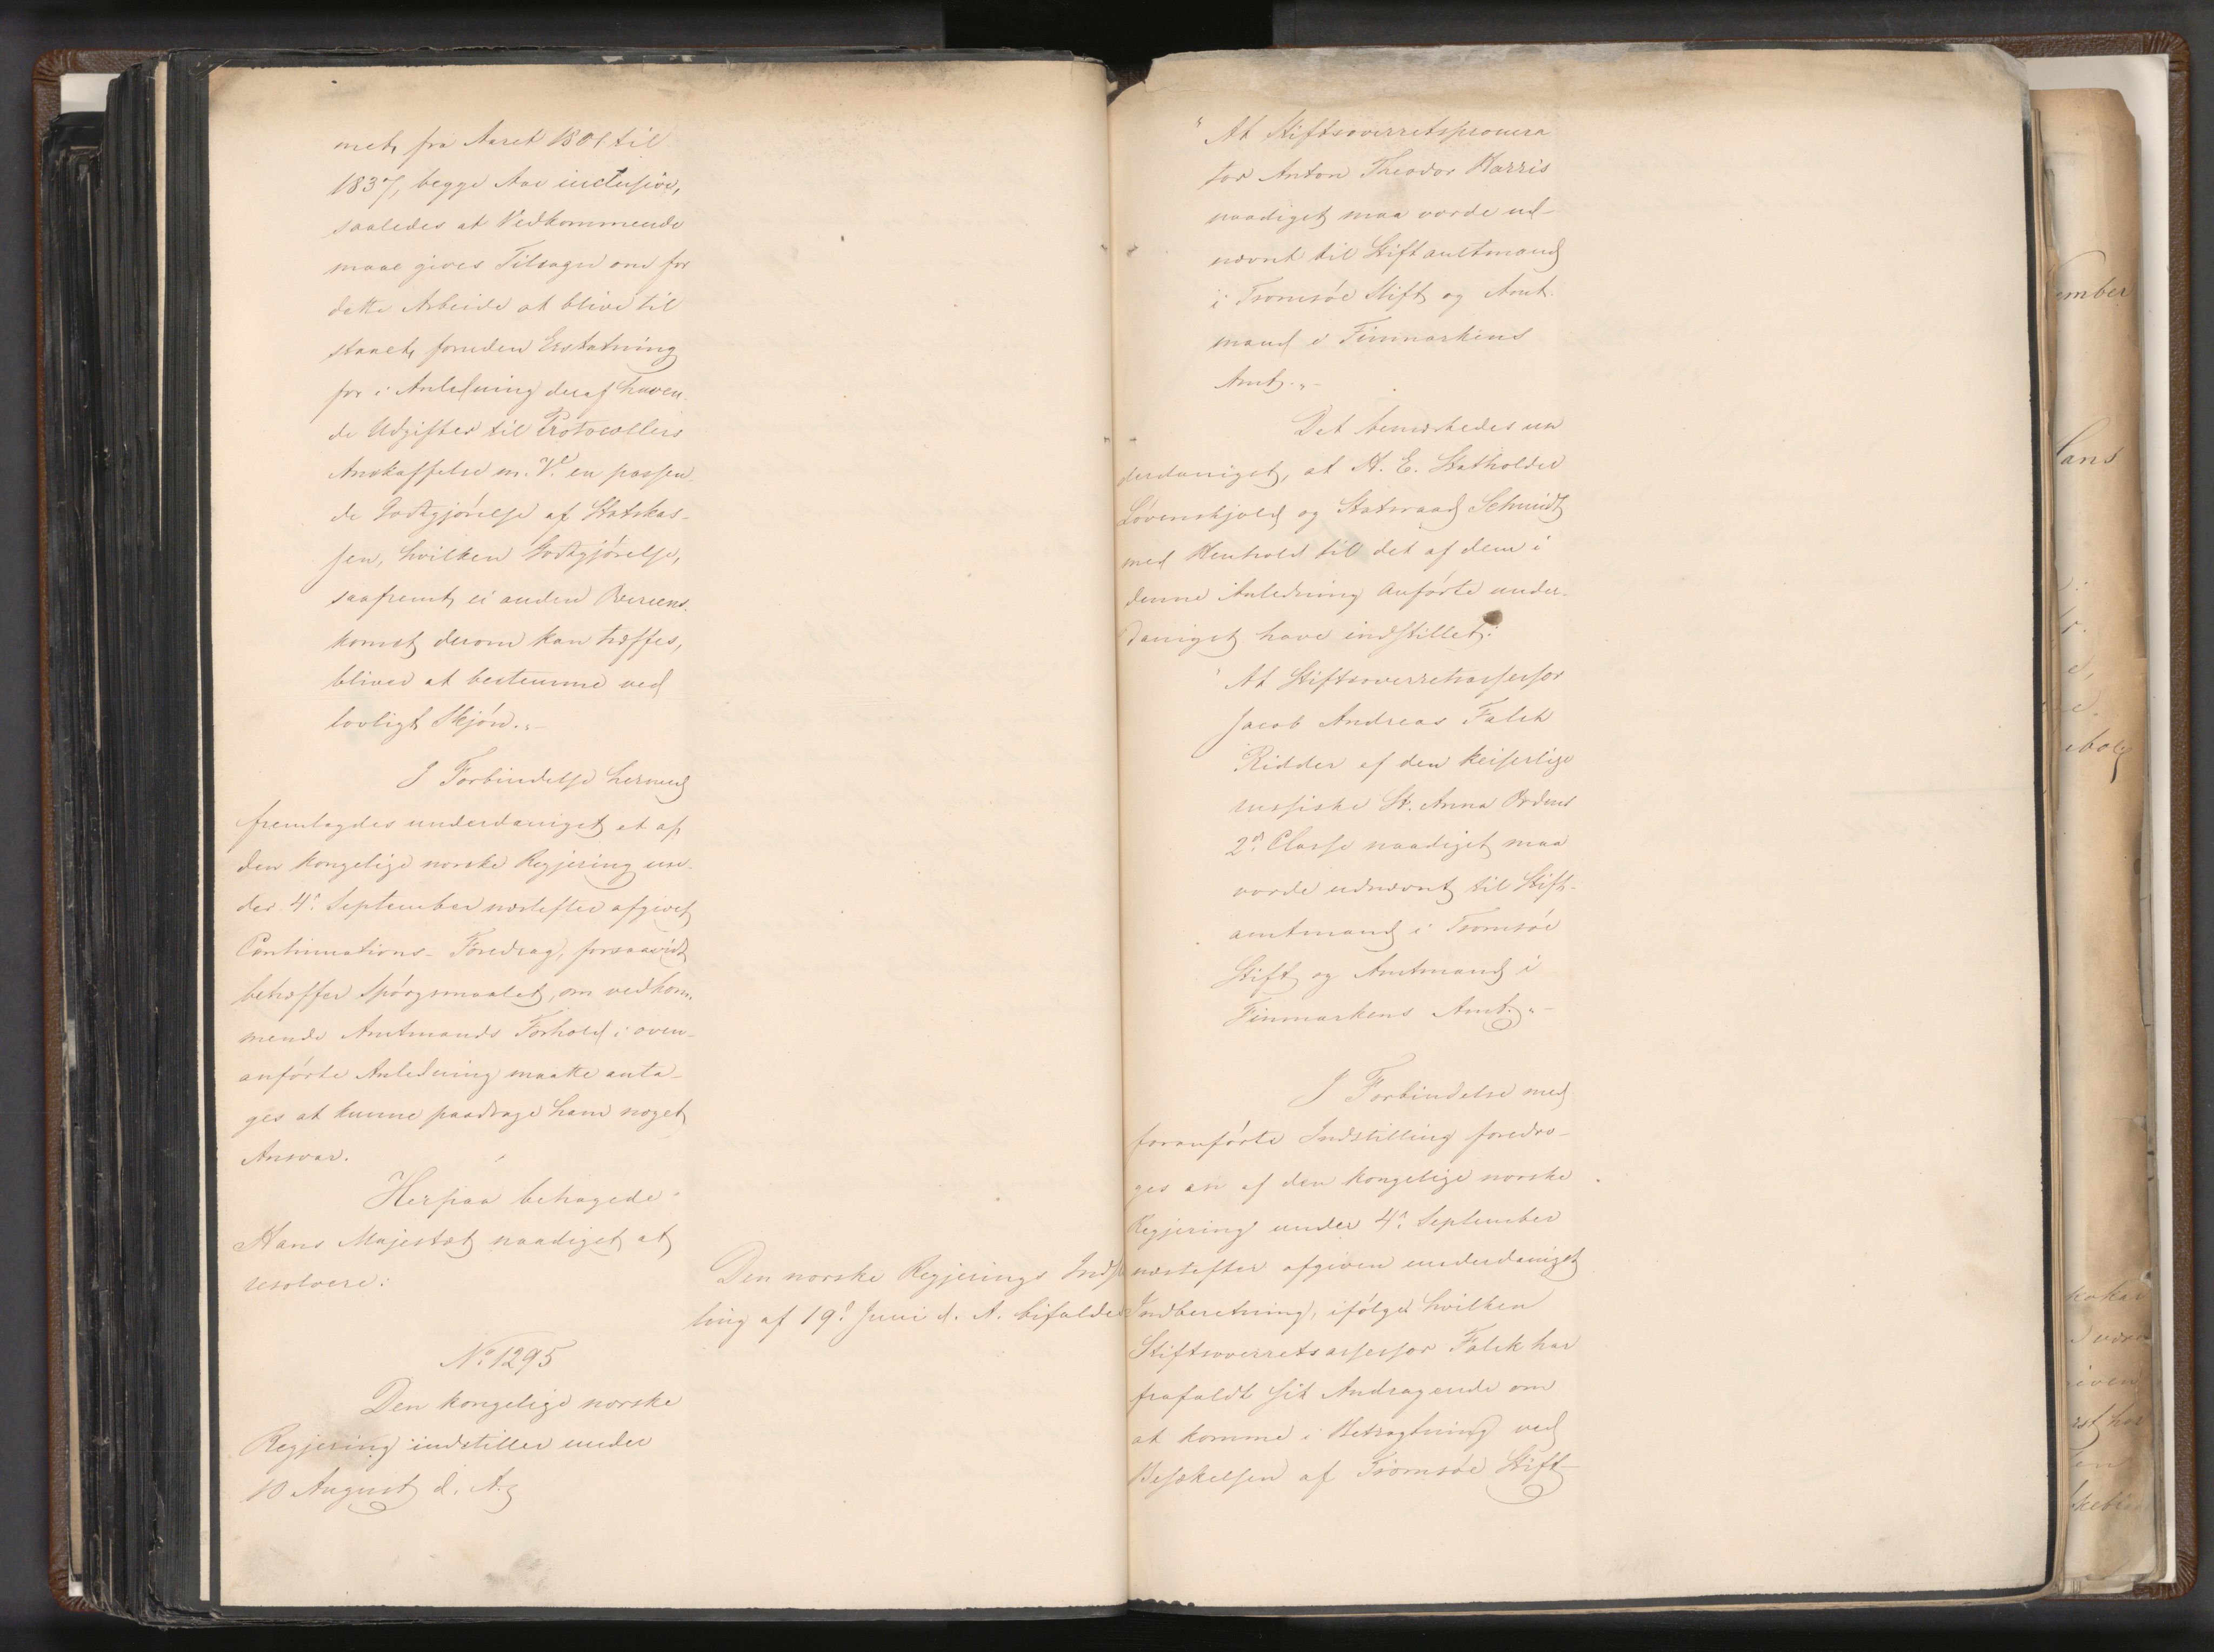 met, fra Aaret 1801 til
1837, begge Aar inclusive,
saaledes at Vedkommende
maae gives Tilsagn om for
dette Arbeide at blive til
staaet, foruden Erstatning
for i Anledning deraf haven
de Udgifter til Protocollers
Anskaffelse m. V. en passen
de Godtgjørelse af Statskas-
sen, hvilken Godtgjørelse,
saafremt ei anden Overeens
komst derom kan træffes,
bliver at bestemme ved
lovligt Skjøn."-
I Forbindelse hermed
fremlagdes underdanigst et af
den kongelige norske Regjering un-
der 4de September næstefter afgivet
Continuations-Foredrag, forsaavidt
betræffer Spørgsmaalet, om vedkom-
mende Amtmands Forhold i oven-
anførte Anledning maatte anta-
ges at kunne paadrage ham noget
Ansvar.
Herpaa behagede
Hans Majestæt naadigst at
resolvere:
Den norske Regjerings Indstil
ling af 19de Juni d. A. bifaldes
No 1295
Den kongelige norske
Regjering indstiller under
10 August d. A.
"At Stiftsoverretsprocura
tor Anton Theodor Harris
naadigst maa vorde ud-
nævnt til Stiftamtmand
i Tromsøe Stift og Amt-
mand i Finmarkens
Amt."-
Det bemærkedes un
derdanigst, at H. E. Statholder
Løvenskjold og Statsraad Schmidt
med Henhold til det af dem i
denne Anledning Anførte under-
danigst have indstillet:
"At Stiftsoverretsassessor
Jacob Andreas Falck
Ridder af den keiserlige
russiske St. Anna Ordens
2den Classe naadigst maa
vorde udnævnt til Stift-
amtmand i Tromsøe
Stift og Amtmand i
Finmarkens Amt."-
I Forbindelse med
foranførte Indstilling foredro-
ges en af den kongelige norske
Regjering under 4de September
næstefter afgiven underdanigst
Indberetning, ifølge hvilken
Stiftsoverretsassessor Falck har
frafaldt sit Andragende om
at komme i Betragtning ved
Besættelsen af Tromsøe Stift